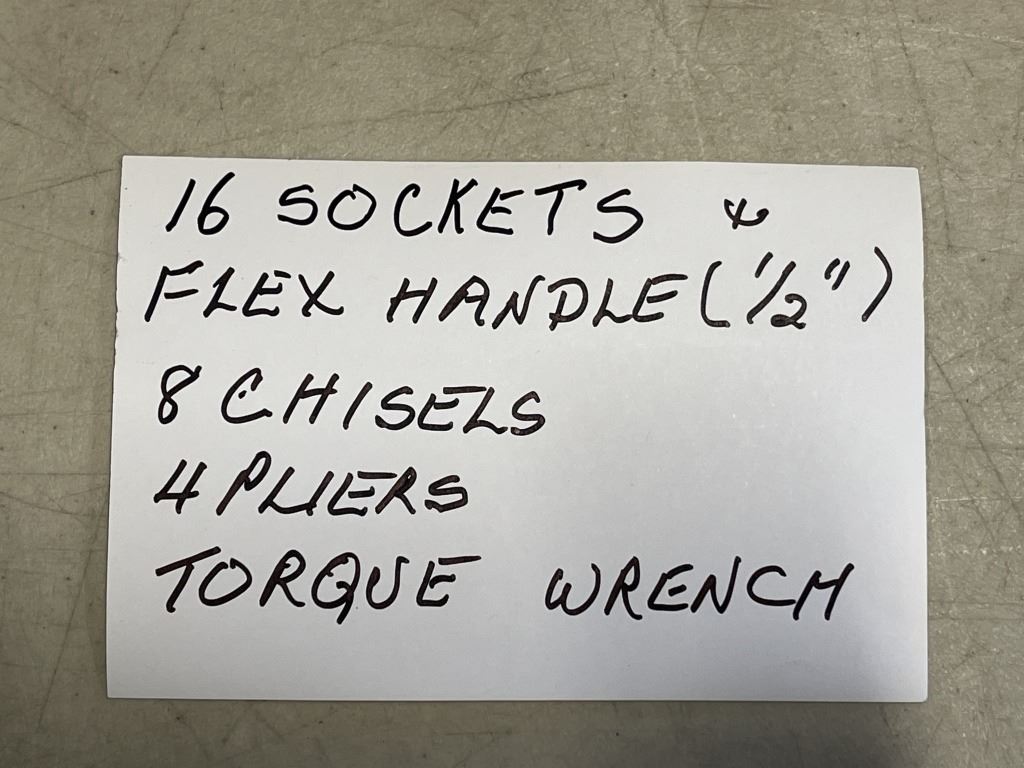 16 SOCKETS &
FLEX HANDLE (1/2")
8 CHISELS
4 PLIERS
TORQUE WRENCH